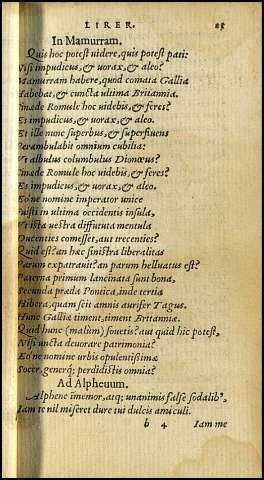 LIBER. 25
In Mamurram.
Quis hoc potest uidere, quis potest pati:
Nisi impudicus, & uorax, & aleo?
Mamurram habere, quod comata Gallia
Habebat, & cuncta ultima Britannia.
Cinæde Romule hoc uidebis, & feres?
Es impudicus, & uorax, & aleo.
Et ille nunc superbus, & superfluens
Perambulabit omnium cubilia:
Vt albulus columbulus Dionœus?
Cinæde Romule hoc uidebis, & feres?
Es impudicus, & uorax, & aleo.
Eo ne nomine imperator unice
Fuisti in ultima occidentis insula,
Vt ista uestra diffututa mentula
Ducenties comesset, aut trecenties?
Quid est? an hæc sinistra liberalitas
Parum expatrauit? an parum helluatus est?
Paterna primum lancinata sunt bona,
Secunda præda Pontica, inde tertia
Hibera, quam scit amnis aurifer Tagus.
Hunc Galliæ timent, timent Britanniæ.
Quid hunc (malũm) fouetis? aut quid hic potest,
Nisi uncta deuorare patrimonia?
Eo ne nomine urbis opulentißimæ
Socer, generq́; perdidistis omnia?
Ad Alpheuum.
Alphene īmemor, atq; unanimis false sodalib⁹,
Iam te nil miseret dure tui dulcis amiculi.
b 4 Iam me